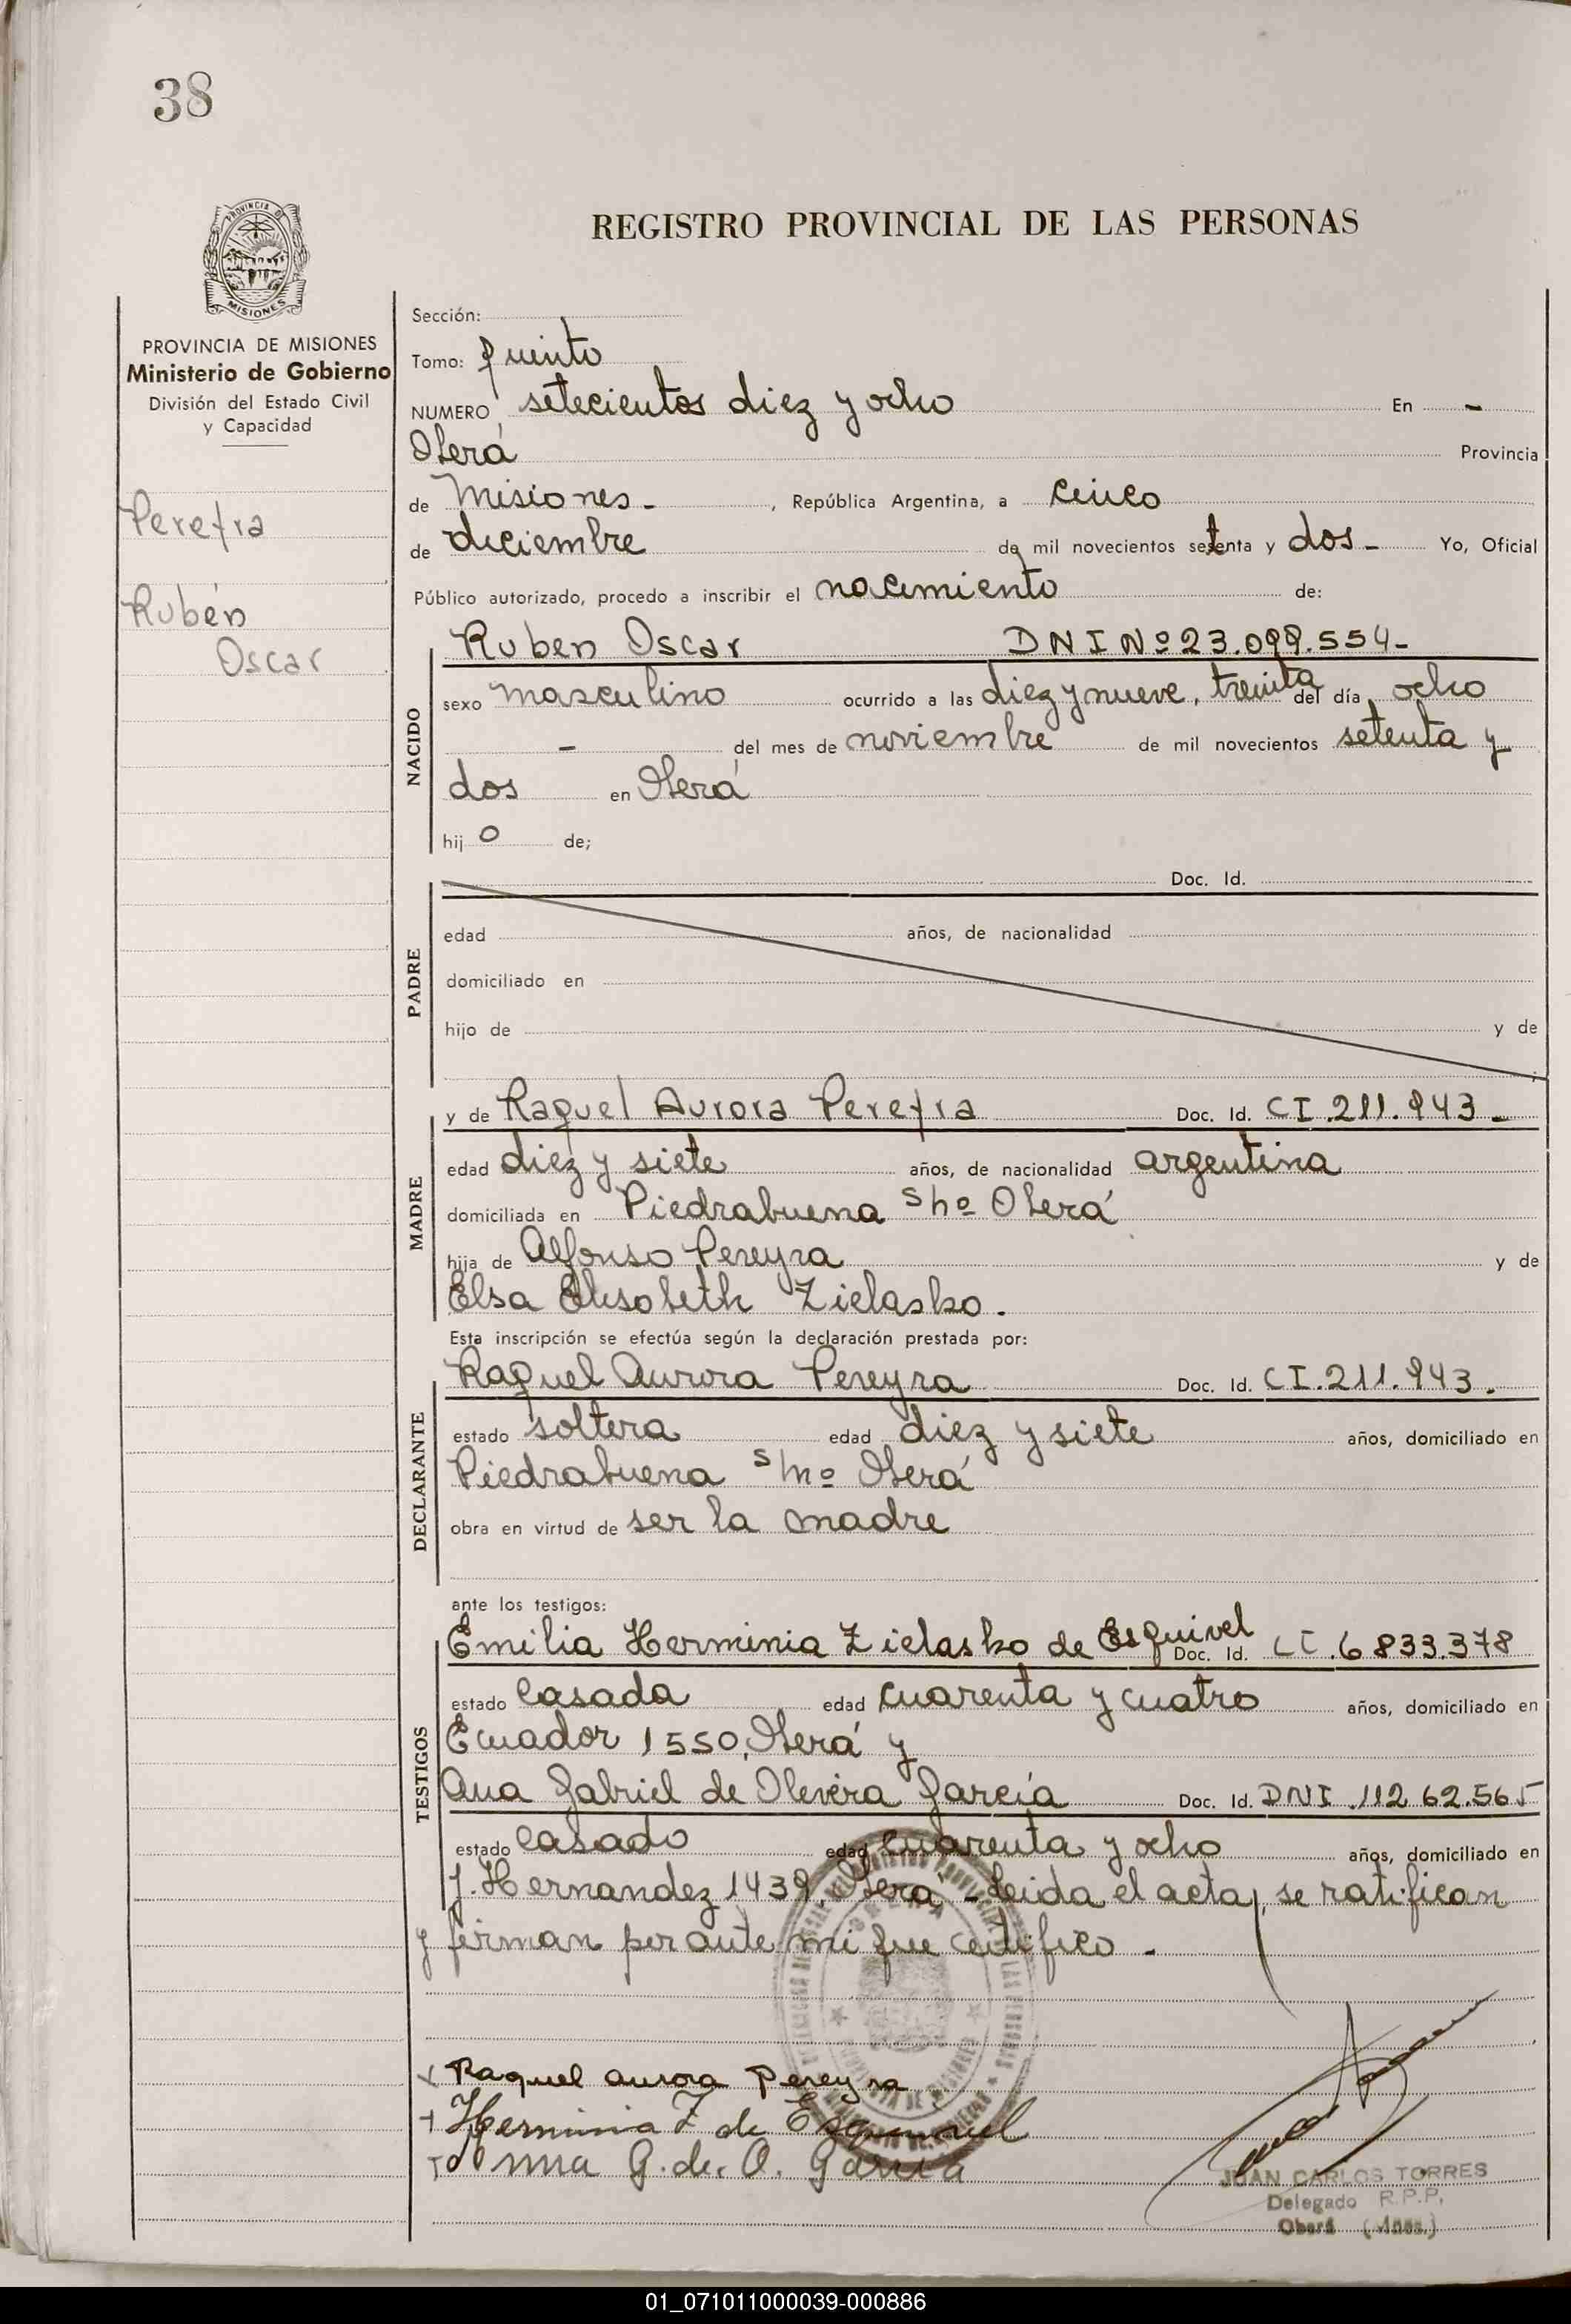 38
PROVINCIA DE
MISIONES
REGISTRO PROVINCIAL DE LAS PERSONAS
PROVINCIA DE MISIONES
Ministerio de Gobierno
División del Estado Civil
y Capacidad
Pereyra
Rubén
Oscar
Sección:
Tomo: quinto
NUMERO setecientos diez y ocho En -
Oberá Provincia
de Misiones - , República Argentina, a cinco
de diciembre de mil novecientos setenta y dos - Yo, Oficial
Público autorizado, procedo a inscribir el nacimiento de:
NACIDO
Ruben Oscar DNI Nº 23.099.554-
sexo masculino ocurrido a las diez y nueve, treinta del día ocho
- del mes de noviembre de mil novecientos setenta y
dos en Oberá
hij o de;
PADRE
Doc. Id.
edad años, de nacionalidad
domiciliado en
hijo de y de
MADRE
y de Raquel Aurora Pereyra Doc. Id. CI.211.943-
edad diez y siete años, de nacionalidad argentina
domiciliada en Piedrabuena s/nº Oberá
hija de Alfonso Pereyra y de
Elsa Elisabeth Zielasko.
Esta inscripción se efectúa según la declaración prestada por:
DECLARANTE
Raquel Aurora Pereyra Doc. Id. CI.211.943.
estado soltera edad diez y siete años, domiciliado en
Piedrabuena s/nº Oberá
obra en virtud de ser la madre
ante los testigos:
TESTIGOS
Emilia Herminia Zielasko de Esquivel Doc. Id. CI.6833.378
estado casada edad cuarenta y cuatro años, domiciliado en
Ecuador 1550, Oberá y
Ana Gabriel de Olivera García Doc. Id. DNI.112 62.565
estado casado edad cuarenta y ocho años, domiciliado en
J. Hernandez 1439, Oberá - Leida el acta, se ratifican
y firman por ante mi que certifico -
Raquel aurora Pereyra
Herminia Z de Esquivel
G. de O. García
JUAN CARLOS TORRES
Delegado R.P.P.
Oberá (Mnes.)
01_071011000039-000886